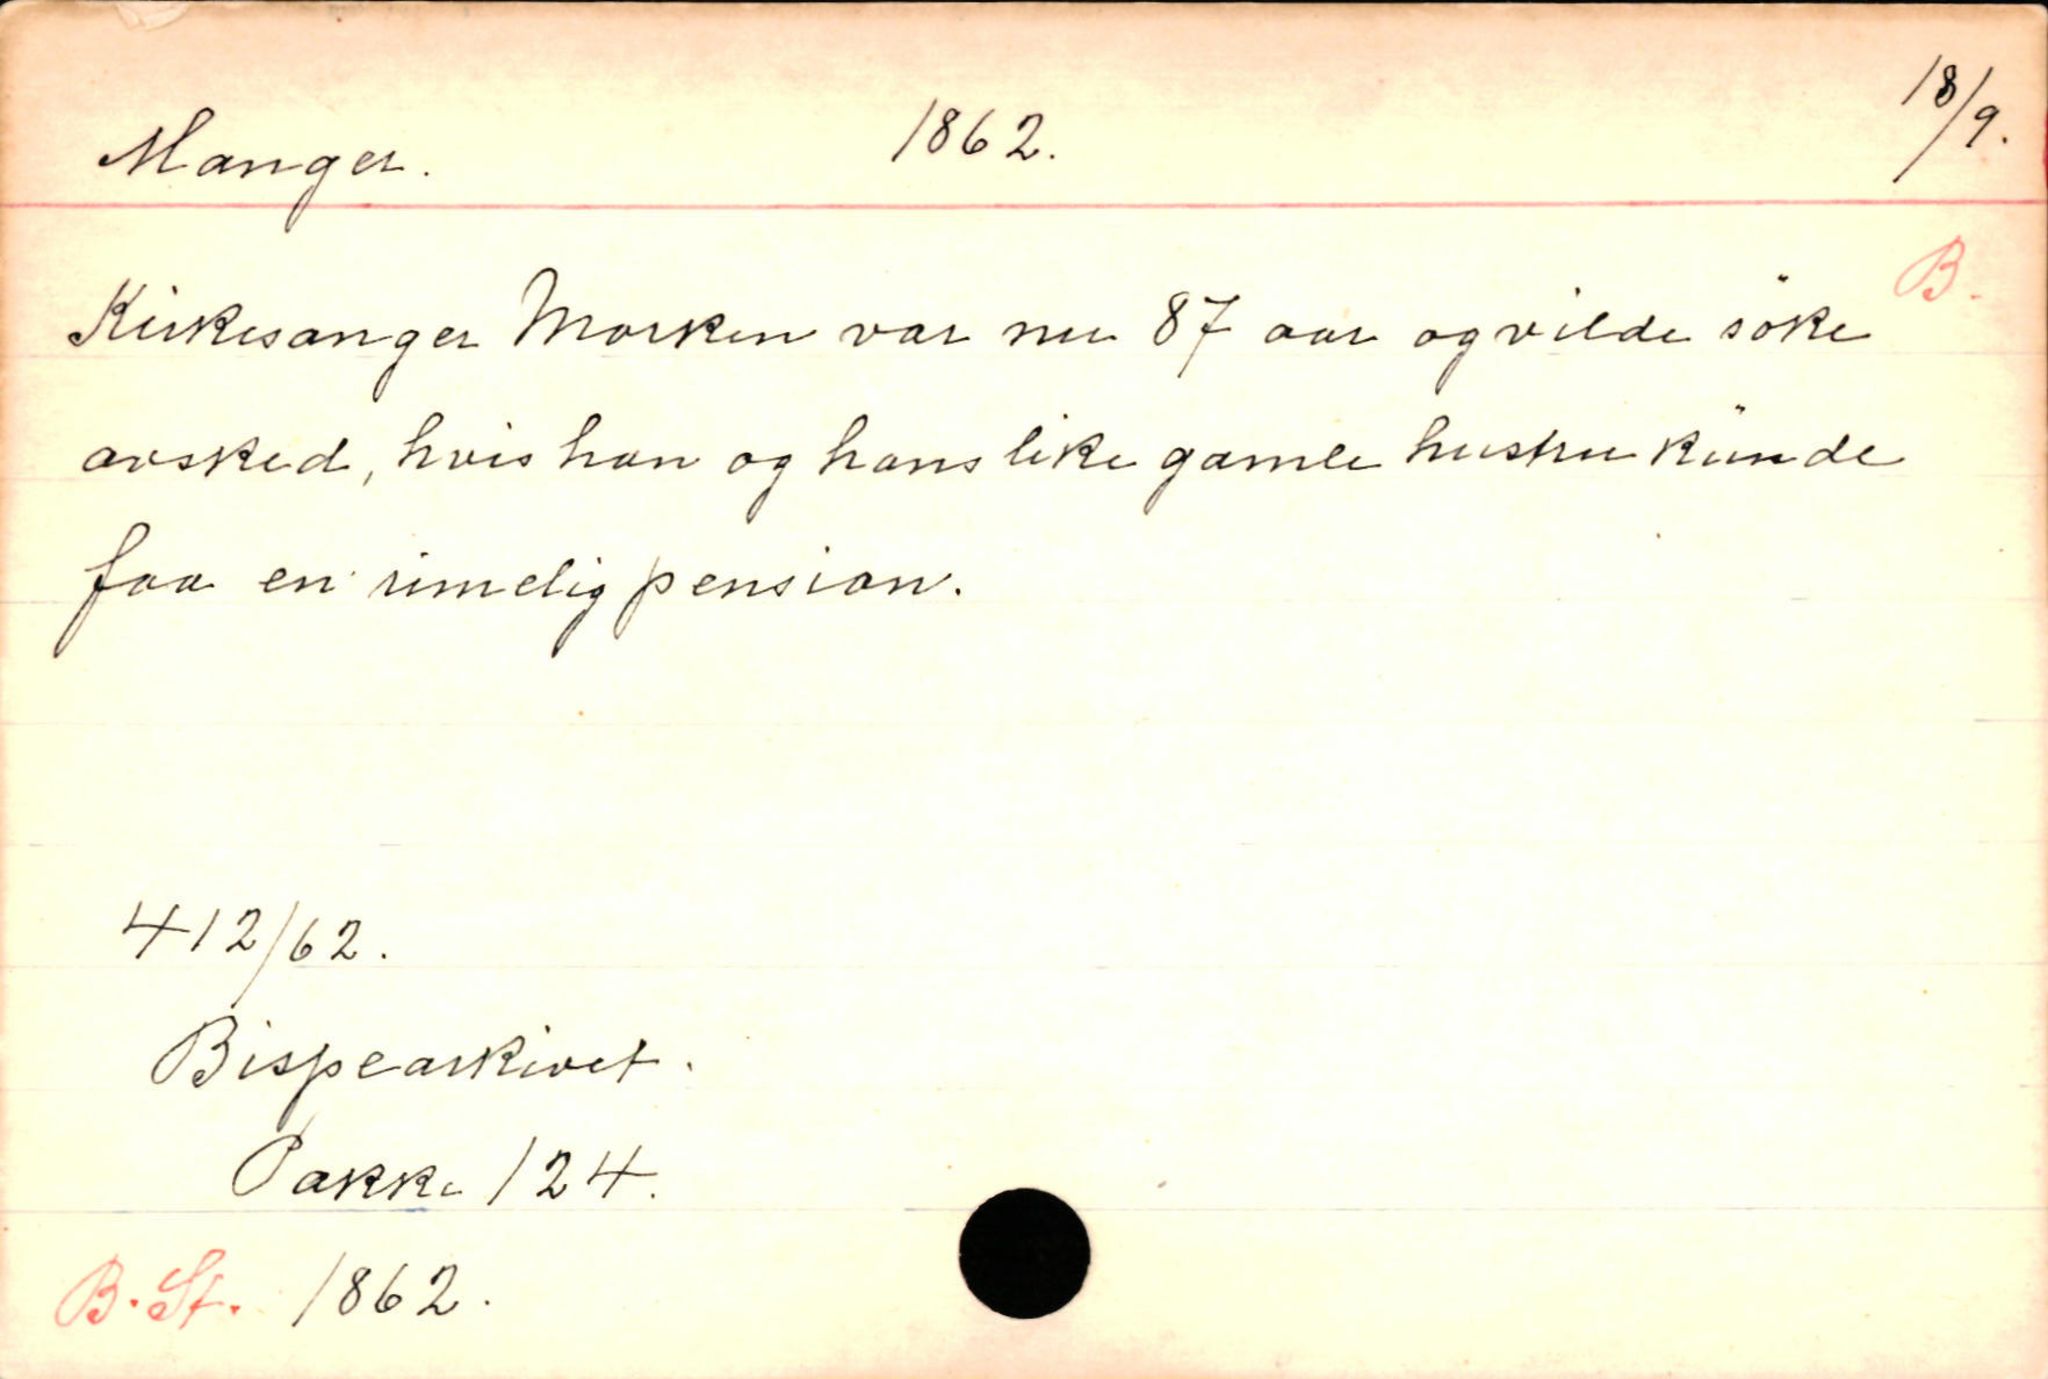 Manger. 1862. 18/9.
B.
Kirkesanger Morken var nu 87 aar og vilde söke
avsked, hvis han og hans like gamle hustru künde
faa en rimelig pension.
412/62.
Bispearkivet.
Pakke 124.
B. St. 1862.